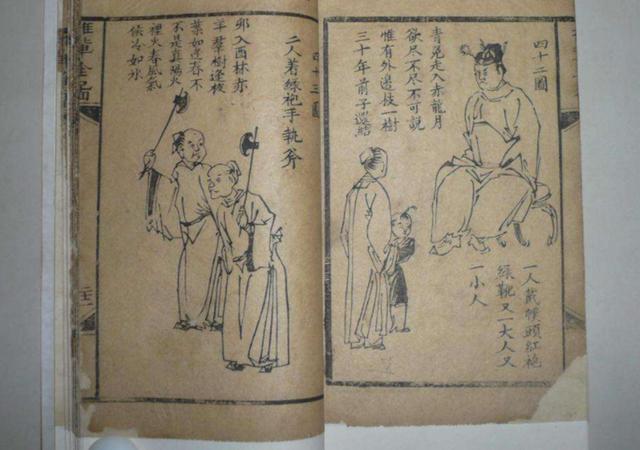 四十二圖
青兎走入赤龍月
欲尽不尽不可說
惟有外邊枝一樹
三十年前子還結
一人戴幞頭紅袍
綠靴又一大人又
一小人
四十三圖
二人著綠袍手執斧
邪入酉林亦
羊群樹逢枝
葉如逢春不
不是真陽火
裡火春風氣
候冷如氷